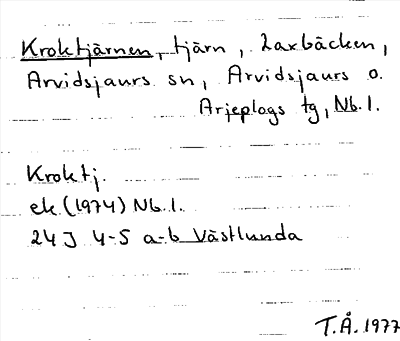 Kroktjärnen, tjärn, Laxbäcken,
Arvidsjaurs sn, Arvidsjaurs o.
Arjeplogs tg, Nb. l.
Kroktj.
ek (1974) Nb. l.
24J 4-5 a-b Västlunda
T.Å. 1977